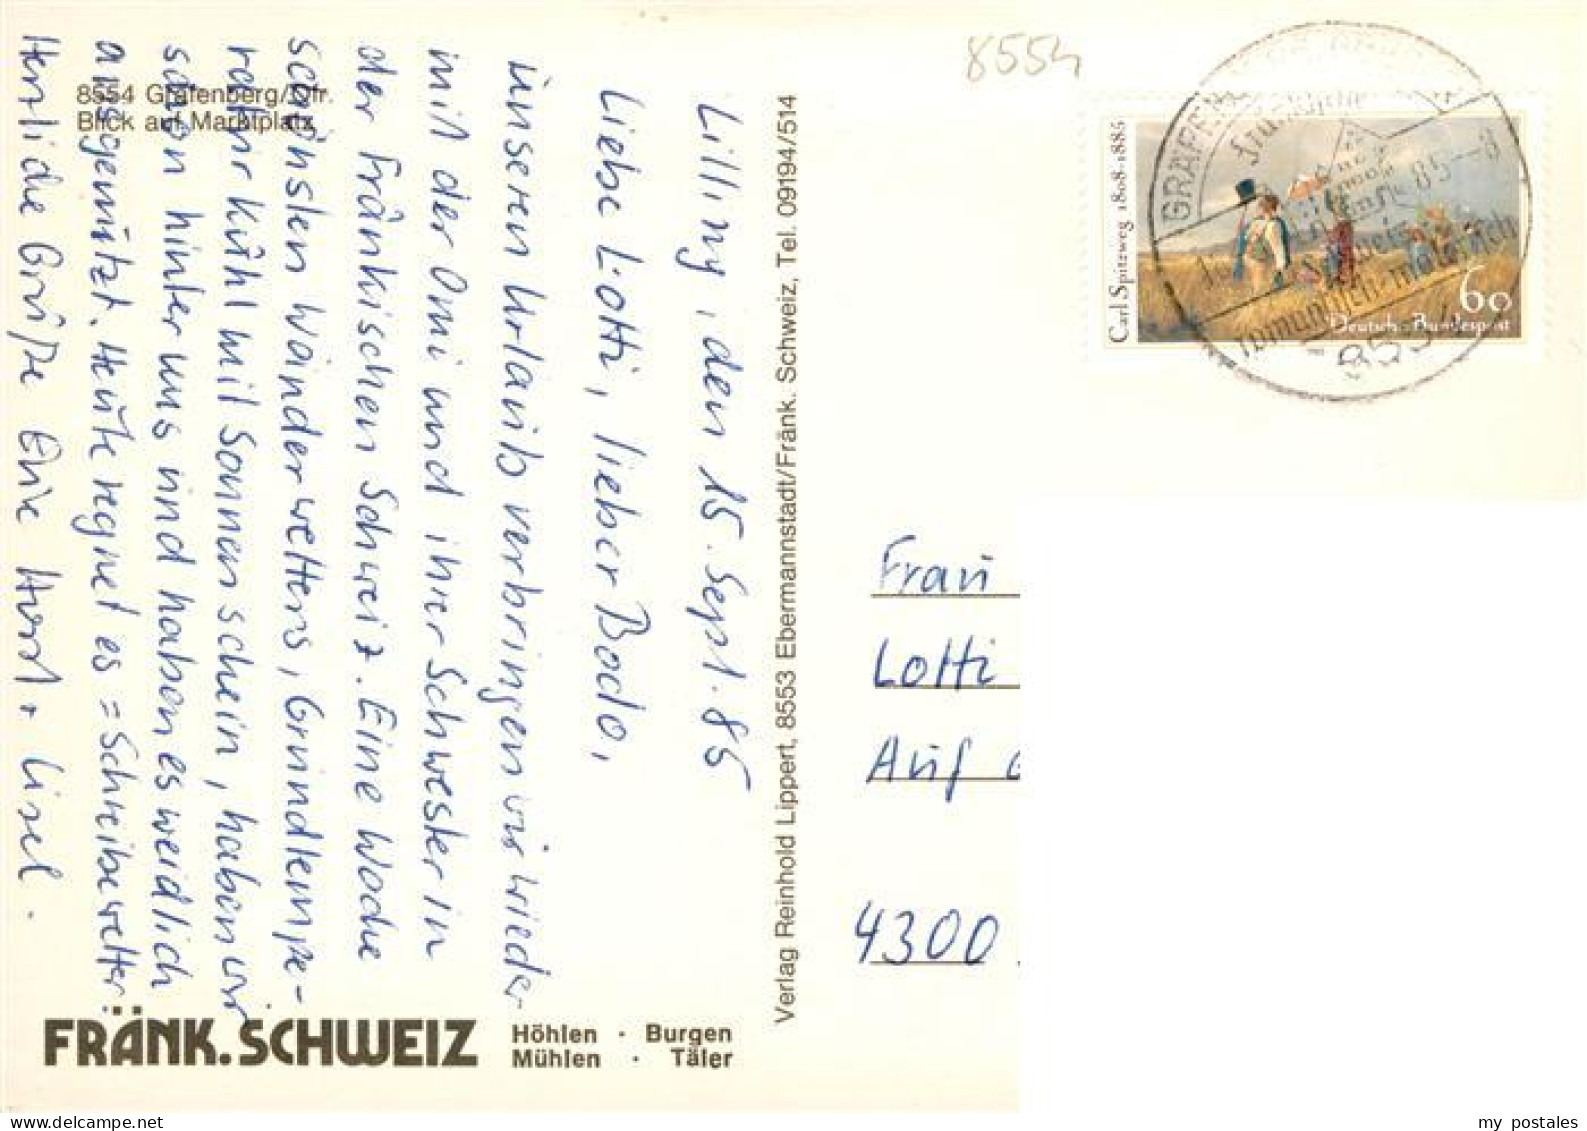 8554
8554 Gräfenberg/Ofr.
Blick auf Marktplatz
Lilling, den 15. Sept. 85
Liebe Lotti, lieber Bodo,
unseren Urlaub verbringen wir wieder
mit der Omi und ihrer Schwester in
der Fränkischen Schweiz. Eine Woche
schönsten Wanderwetters, Grundtempe-
ratur kühl mit Sonnenschein, haben wir
schon hinter uns und haben es weidlich
ausgenützt. Heute regnet es = Schreibewetter.
Herzliche Grüße Eure Horst + Lisel.
Verlag Reinhold Lippert, 8553 Ebermannstadt/Fränk. Schweiz, Tel. 09194/514
FRÄNK. SCHWEIZ
Höhlen · Burgen
Mühlen · Täler
Carl Spitzweg 1808-1885
60
Deutsche Bundespost
GRÄFEN
Fränkische
85--8
romantisch-malerisch
8554
Frau
Lotti
Auf
4300
my postales